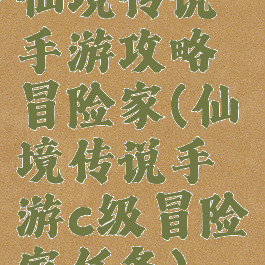 仙境传说
手游攻略
冒险家(仙
境传说手
游c级冒险
家任务)